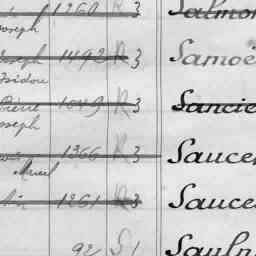 1260 R 3 Salmon
Joseph
Joseph 1492 R 3 Samoë
Isidou
Pierre 1049 R 3 Sancie
Joseph
1366 R 3 Sauce
Marcel
1261 R 3 Sauce
92 S 1 Sauln